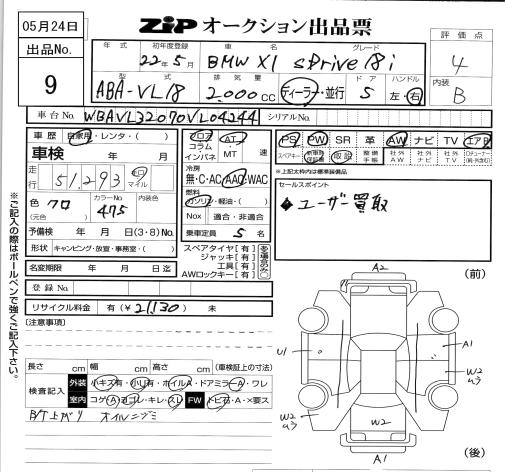 05月24日
ZIP オークション出品票
出品No.
9
評価点
4
内装
B
年式 初年度登録 車名 グレード
22年5月 BMW X1 sDrive 18i
型式 排気量 ドア ハンドル
ABA-VL18 2,000cc ディーラー・並行 5 左・右
車台No. WBAVL32070VL04244 シリアルNo.
車歴 自家用・レンタ・( )
フロア コラム インパネ
AT・MT 速
PS PW SR 革 AW ナビ TV エアB
スペアキー 新車時保証書 取説 整備手帳 社外AW 社外ナビ 社外TV
※上記太枠内は標準装備品
車検 年 月
冷房
無・C・AC・AAC・WAC
走行 51,293 キロ マイル
燃料
ガソリン・軽油・( )
色 クロ (元色) カラーNo. 475 内装色
Nox 適合・非適合
予備検 年 月 日(3・8)No.
乗車定員 5 名
形状 キャンピング・放宣・事務室・( )
名変期限 年 月 日迄
スペアタイヤ[有]
ジャッキ[有]
工具[有]
AWロックキー[有]
登録No.
リサイクル料金 有(¥21,130) 未
[注意事項]
セールスポイント
◆ユーザー買取
長さ cm 幅 cm 高さ cm (車検証上の寸法)
検査記入
外装 小キズ有・小凹有・ホイルA・ドアミラーA・ワレ
室内 コゲA・ヨゴレ・キレ・スレ FW トビ石・A・×要ス
B/T上がり オイルニジミ
※ご記入の際はボールペンで強くご記入下さい。
(前)
A2
U1
A1
W2
W2
W2
A1
(後)